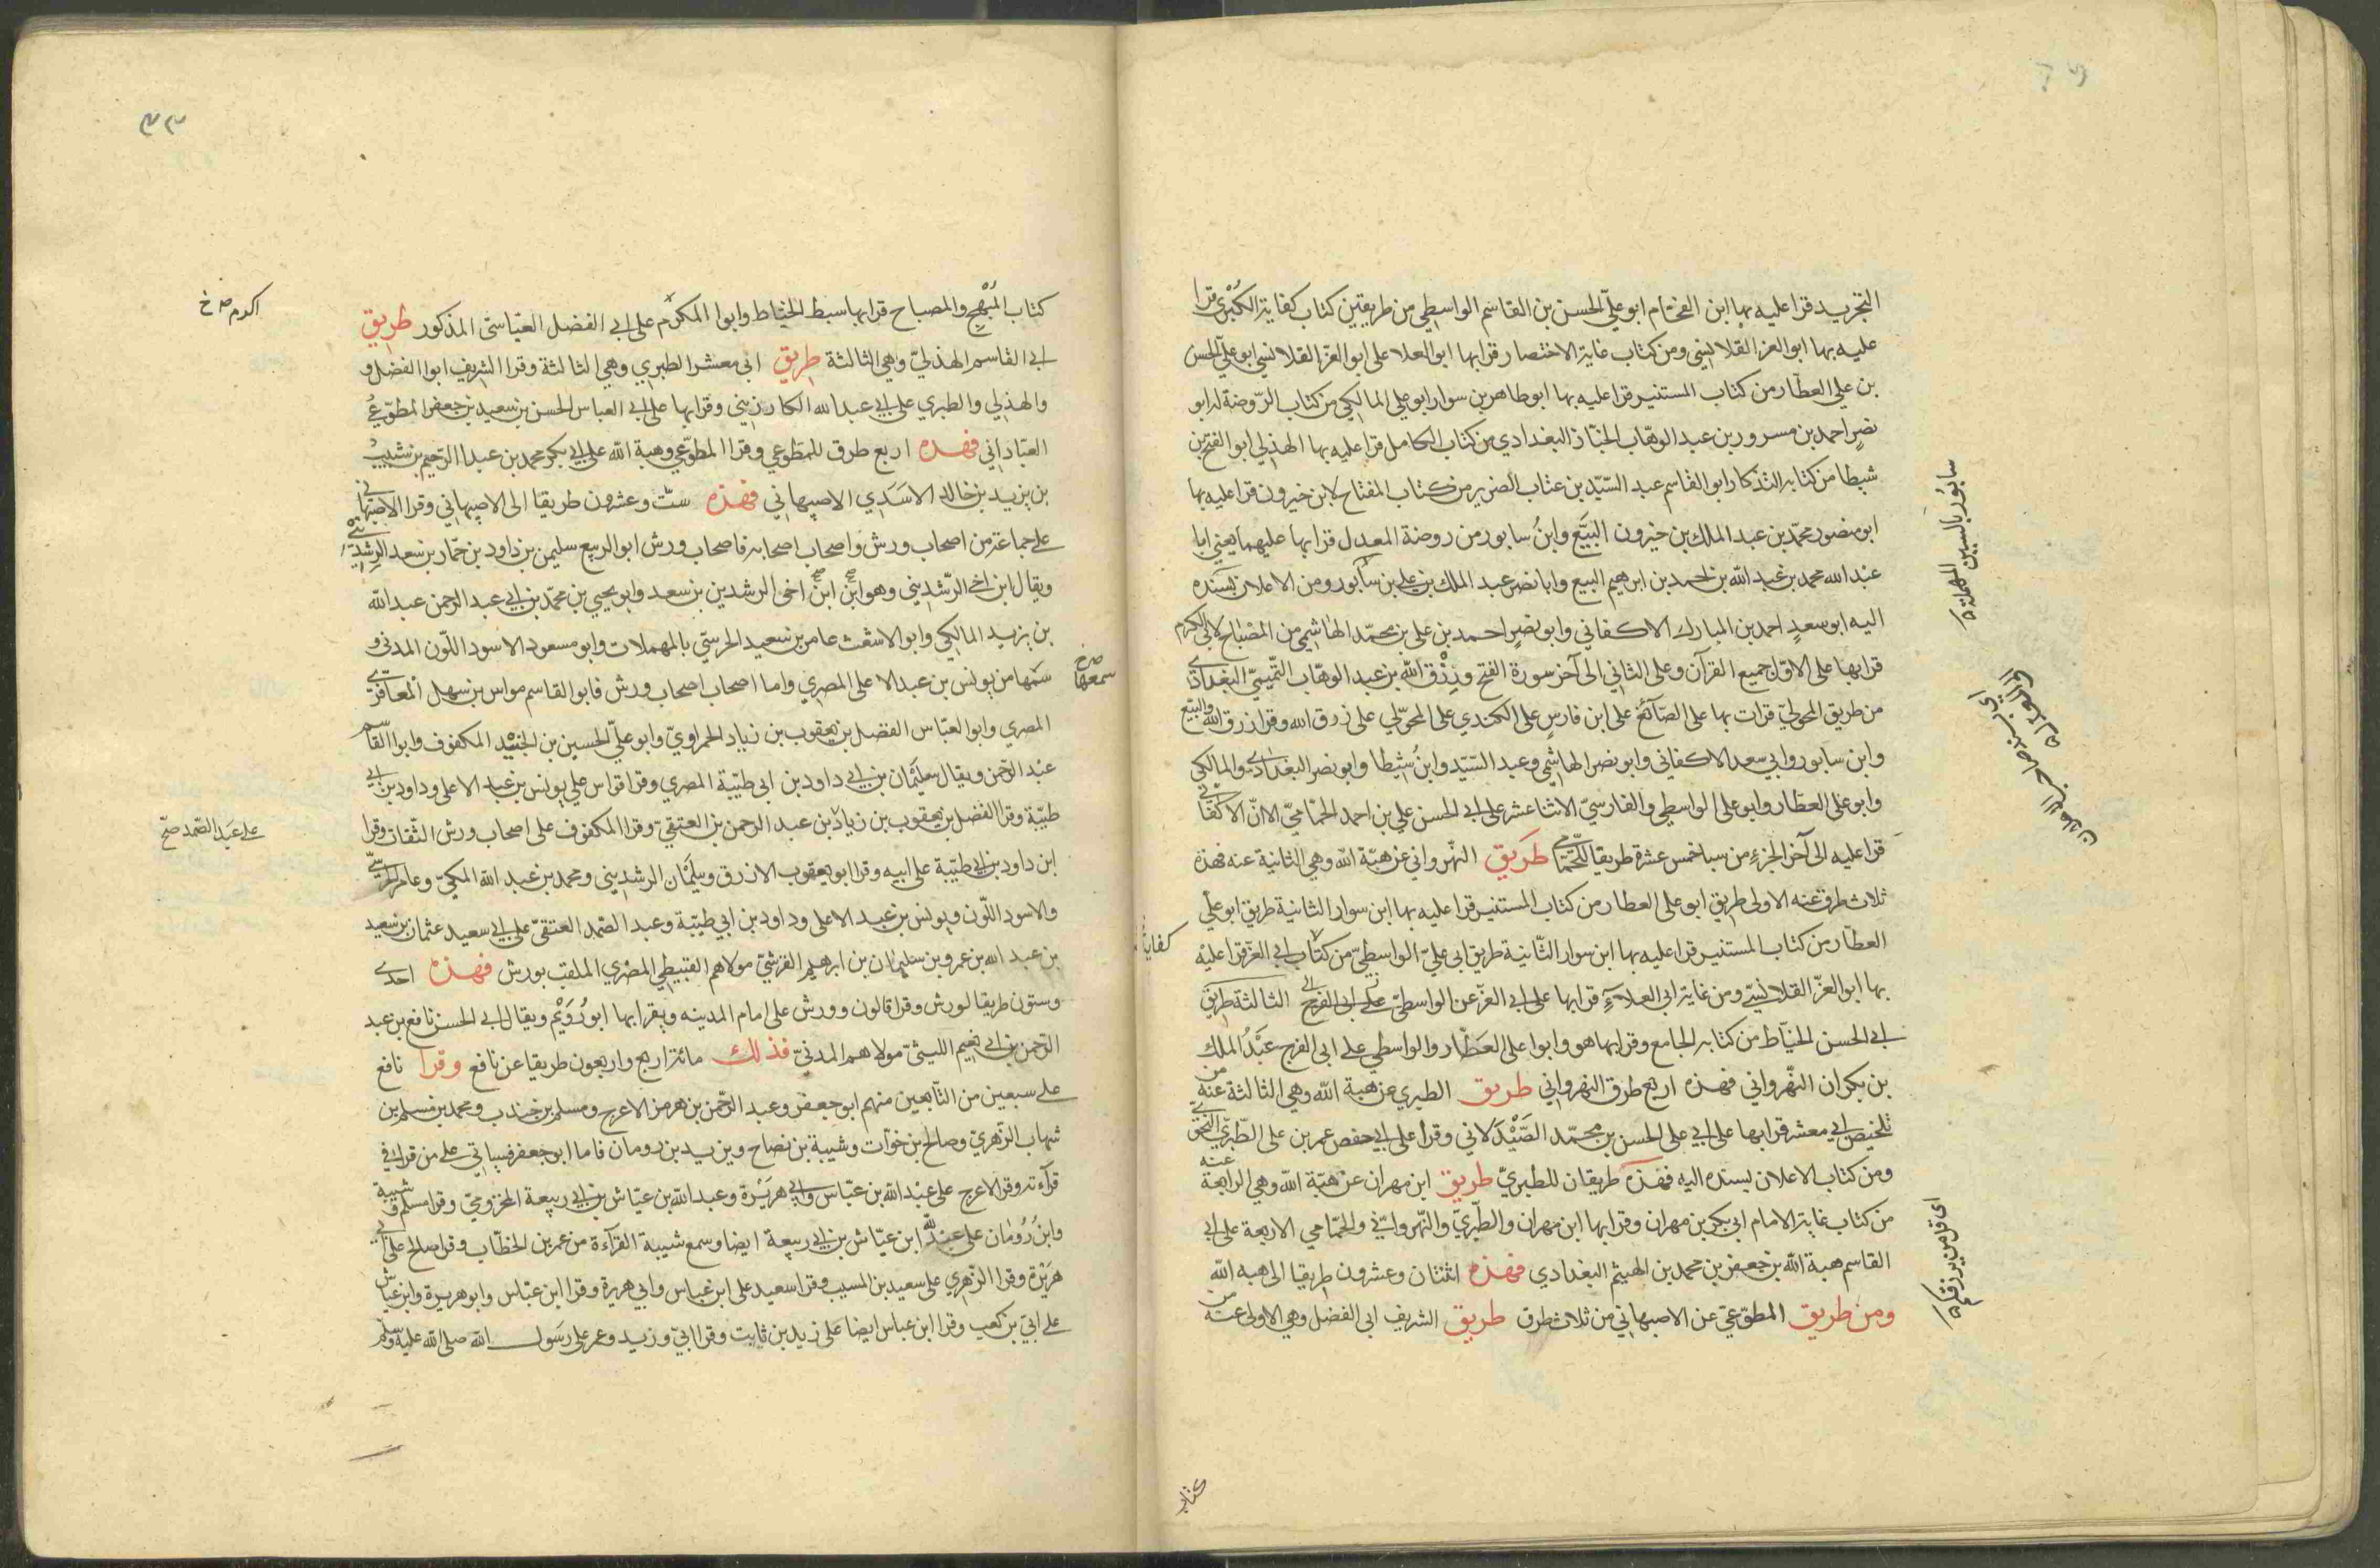 التجريد قرا عليه بها ابن الفحام ابو علي الحسن بن القاسم الواسطي من طريقين كتاب كفاية الكبرى قرا
عليه بها ابو العز القلانسي ومن كتاب غاية الاختصار قرا بها ابو العلا على ابو العز القلانسي ابو علي الحسن
بن علي العطار من كتاب المستنير قرا عليه بها ابو طاهر بن سوار ابو علي المالكي من كتاب الروضة له ابو
نصر احمد بن مسرور بن عبد الوهاب الخباز البغدادي من كتاب الكامل قرا عليه بها الهذلي ابو الفتح بن
شيطا من كتابه التذكار ابو القاسم عبد السيد بن عتاب الضرير من كتاب المفتاح لابن خيرون قرا عليه بها
ابو منصور محمد بن عبد الملك بن خيرون البيع وابن سابور من روضة المعدل قرا بها عليهما يعني ابا
عبد الله محمد بن عبد الله بن احمد بن ابرهيم البيع وابا نصر عبد الملك بن علي بن سابور ومن الاعلان بسنده
اليه ابو سعد احمد بن المبارك الاكفاني وابو نصر احمد بن علي بن محمد الهاشمي من المصباح لابي الكرم
قرا بها على الاول جميع القرآن وعلى الثاني الى آخر سورة الفتح ورزق الله بن عبد الوهاب التميمي البغدادي
من طريق المحولي قرات بها على الصائغ على ابن فارس على الكندي على المحولي على رزق الله وقرا رزق الله والبيع
وابن سابور وابي سعد الاكفاني وابو نصر الهاشمي وعبد السيد وابن شيطا وابو نصر البغدادي والمالكي
وابو علي العطار وابو علي الواسطي والفارسي الاثنا عشر على ابي الحسن علي بن احمد الحمامي الا ان الاكفاني
قرا عليه الى آخر الجزء من سبا خمس عشرة طريقا للحمامي طريق النهرواني عن هبة الله وهي الثانية عنه فهذه
ثلاث طرق عنه الاولى طريق ابو علي العطار من كتاب المستنير قرا عليه بها ابن سوار الثانية طريق ابو علي
العطار من كتاب المستنير قرا عليه بها ابن سوار الثانية طريق ابي علي الواسطي من كتاب ابي العز قرا عليه
بها ابو العز القلانسي ومن غاية ابي العلاء قرا بها على ابي العز عن الواسطي على ابي الفرج الثالثة طريق
ابي الحسن الخياط من كتابه الجامع وقرا بها هو وابوا علي العطار والواسطي على ابي الفرج عبد الملك
بن بكران النهرواني فهذه اربع طرق النهرواني طريق الطبري عن هبة الله وهي الثالثة عنه من
تلخيص ابي معشر قرا بها على ابي علي الحسن بن محمد الصيدلاني وقرا على ابي حفص عمر بن علي الطبري النحوي
ومن كتاب الاعلان بسنده اليه فهذه طريقان للطبري طريق ابن مهران عن هبة الله وهي الرابعة عنه
من كتاب غاية الامام ابي بكر بن مهران وقرا بها ابن مهران والطبري والنهرواني والحمامي الاربعة على ابي
القاسم هبة الله بن جعفر بن محمد بن الهيثم البغدادي فهذه اثنتان وعشرون طريقا الى هبه الله
ومن طريق المطوعي عن الاصبهاني من ثلاث طرق طريق الشريف ابي الفضل وهي الاولى عنه من
سابور بالسين المهملة
كتاب
كتاب المبهج والمصباح قرا بها سبط الخياط وابوا المكرم على ابي الفضل العباسي المذكور طريق
ابي القاسم الهذلي وهي الثالثة طريق ابي معشر الطبري وهي الثالثة وقرا الشريف ابوا الفضل و
والهذلي والطبري على ابي عبد الله الكارزيني وقرا بها على ابي العباس الحسن بن سعيد بن جعفر المطوعي
العباداني فهذه اربع طرق للمطوعي وقرا المطوعي وهبة الله على ابي بكر محمد بن عبد الرحيم بن شبيب
بن يزيد بن خالد الاسدي الاصبهاني فهذه ست وعشرون طريقا الى الاصبهاني وقرا الاصبهاني
على جماعة من اصحاب ورش واصحاب اصحابه فاصحاب ورش ابو الربيع سليمن بن داود بن حمار بن سعد الرشديني
ويقال ابن اخي الرشديني وهو ابن ابن اخي الرشدين بن سعد وابو يحيي بن محمد بن ابي عبد الرحمن عبد الله
بن يزيد المالكي وابو الاشعث عامر بن سعيد الحرستي بالمهملات وابو مسعود الاسود اللون المدني و
سمها من يونس بن عبد الاعلى المصري واما اصحاب اصحاب ورش فابو القاسم مواس بن سهل المعافري
المصري وابو العباس الفضل بن يعقوب بن زياد الحمراوي وابو علي الحسين بن الجنيد المكفوف وابوا القاسم
عبد الرحمن ويقال سليمان بن ابي داود بن ابي طيبة المصري وقرا قواس علي يونس بن عبد الاعلى وداود بن ابي
طيبة وقرا الفضل بن يعقوب بن زياد بن عبد الرحمن بن العتيقي وقرا المكفوف على اصحاب ورش الثقات وقرا
ابن داود بن ابي طيبة على ابيه وقرا ابو يعقوب الازرق وسليمان الرشديني ومحمد بن عبد الله المكي وعامر الحرستي
والاسود اللون ويونس بن عبد الاعلى وداود بن ابي طيبة وعبد الصمد العتقي على ابي سعيد عثمان بن سعيد
بن عبد الله بن عمرو بن سليمان بن ابرهيم القرشي مولاهم القبيطي المصري الملقب بورش فهذه احدى
وستون طريقا لورش وقرا قالون وورش على امام المدينه ويقرا بها ابو رويم ويقال ابي الحسن نافع بن عبد
الرحمن بن ابي نعيم الليثي مولاهم المدني فذلك مائة اربع واربعون طريقا عن نافع وقرا نافع
على سبعين من التابعين منهم ابو جعفر وعبد الرحمن بن هرمز الاعرج ومسلم بن جندب ومحمد بن مسلم بن
شهاب الزهري وصالح بن خوات وشيبة بن نصاح ويزيد بن رومان فاما ابو جعفر فسياتي على من قرا في
قرآءته وقرا الاعرج على عبد الله بن عباس وابي هريرة وعبد الله بن عياش بن ابي ربيعة المخزومي وقرا مسلم وشيبة
وابن رومان على عبد الله ابن عياش بن ابي ربيعة ايضا وسمع شيبة القرآءة من عمر بن الخطاب وقرا صالح على ابي
هريرة وقرا الزهري على سعيد بن المسيب وقرا سعيد على ابن عباس وابي هريرة وقرا ابن عباس وابو هريرة وابن عياش
على ابي بن كعب وقرا ابن عباس ايضا على زيد بن ثابت وقرا ابي وزيد وعمر على رسول الله صلى الله عليه وسلم
اكرم خ
سمعها
على عبد الصمد صح